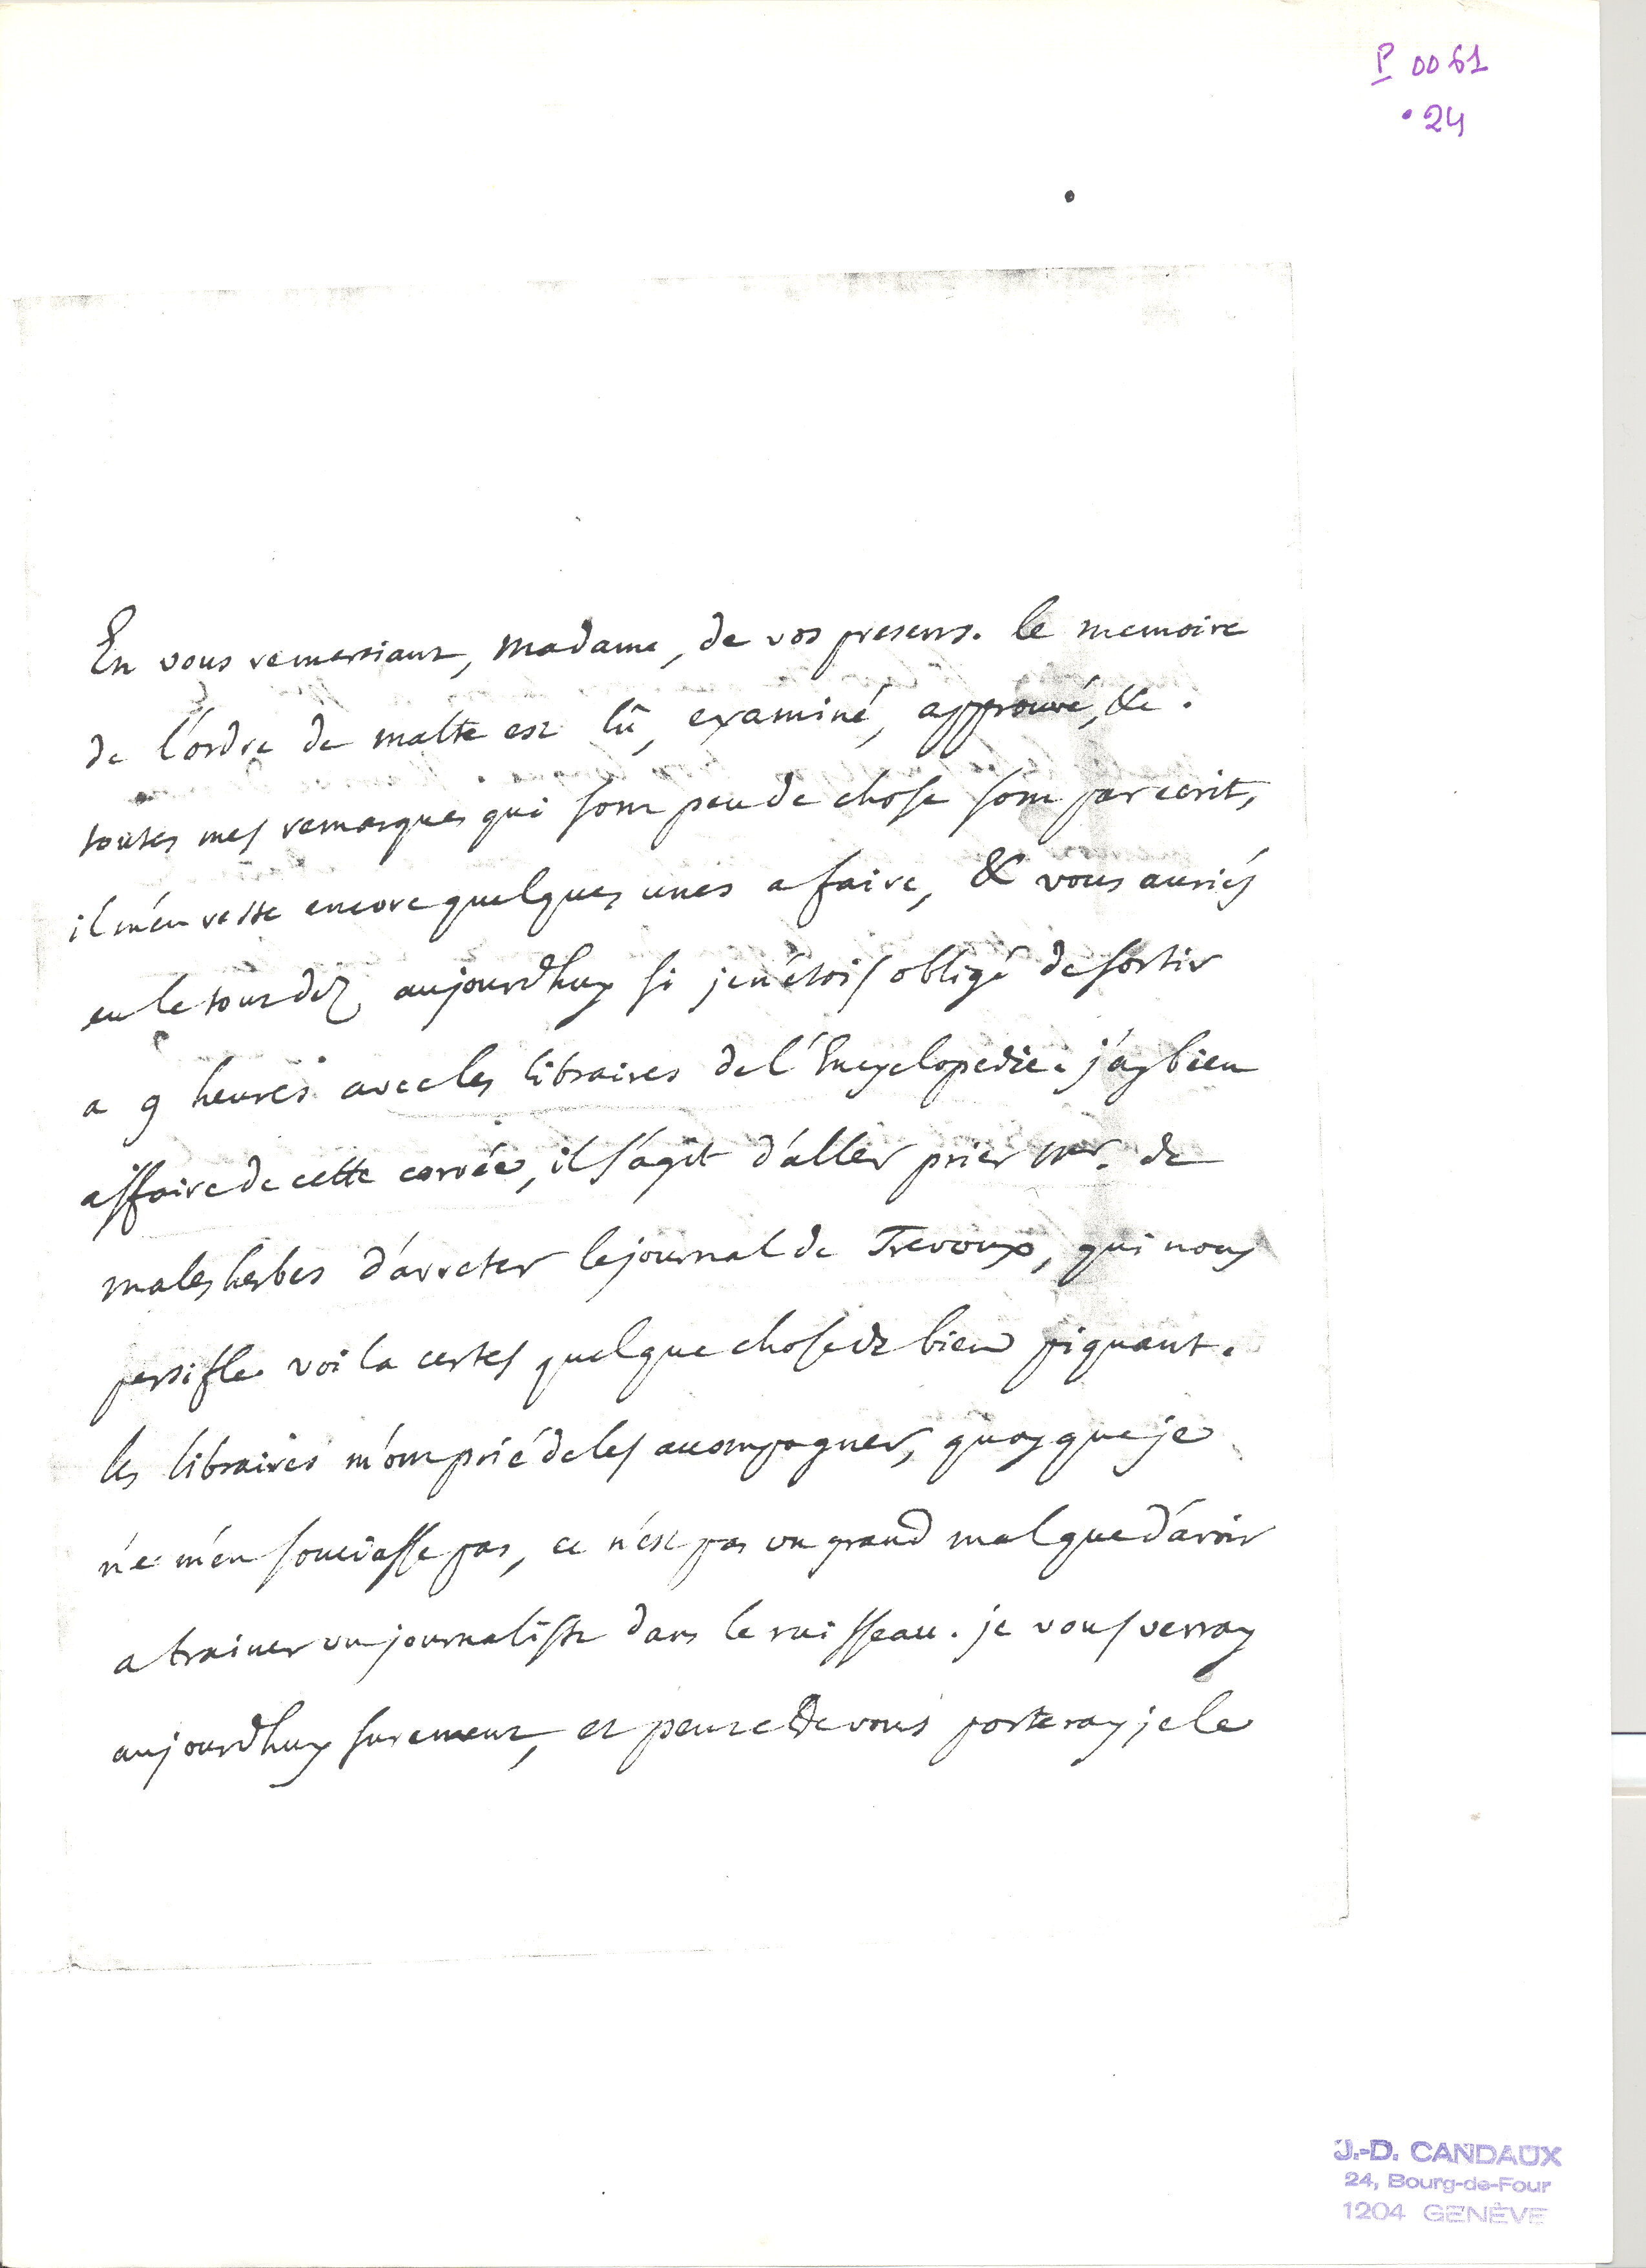 P 0061
24
En vous remersiant, madame, de vos presens. le memoire
de l'ordre de malte est lû, examiné, approuvé, &c.
toutes mes remarques qui sont peu de chose sont par ecrit,
il m'en reste encore quelques unes a faire, & vous auriés
eu le tout dez aujourdhuy si je n'étois obligé de sortir
a 9 heures avec les libraires de l'Encyclopedie. j'ay bien
affaire de cette corvée, il s'agit d'aller prier Mr. de
malesherbes d'arreter le journal de Trevoux, qui nous
persifle. voila certes quelque chose de bien piquant.
les libraires m'ont prié de les accompagner, quoy que je
ne m'en souciasse pas, ce n'est pas un grand mal que d'avoir
a trainer un journaliste dans le ruisseau. je vous verray
aujourdhuy surement, et peutetre vous porteray je le
J.-D. CANDAUX
24, Bourg-de-Four
1204 GENÈVE